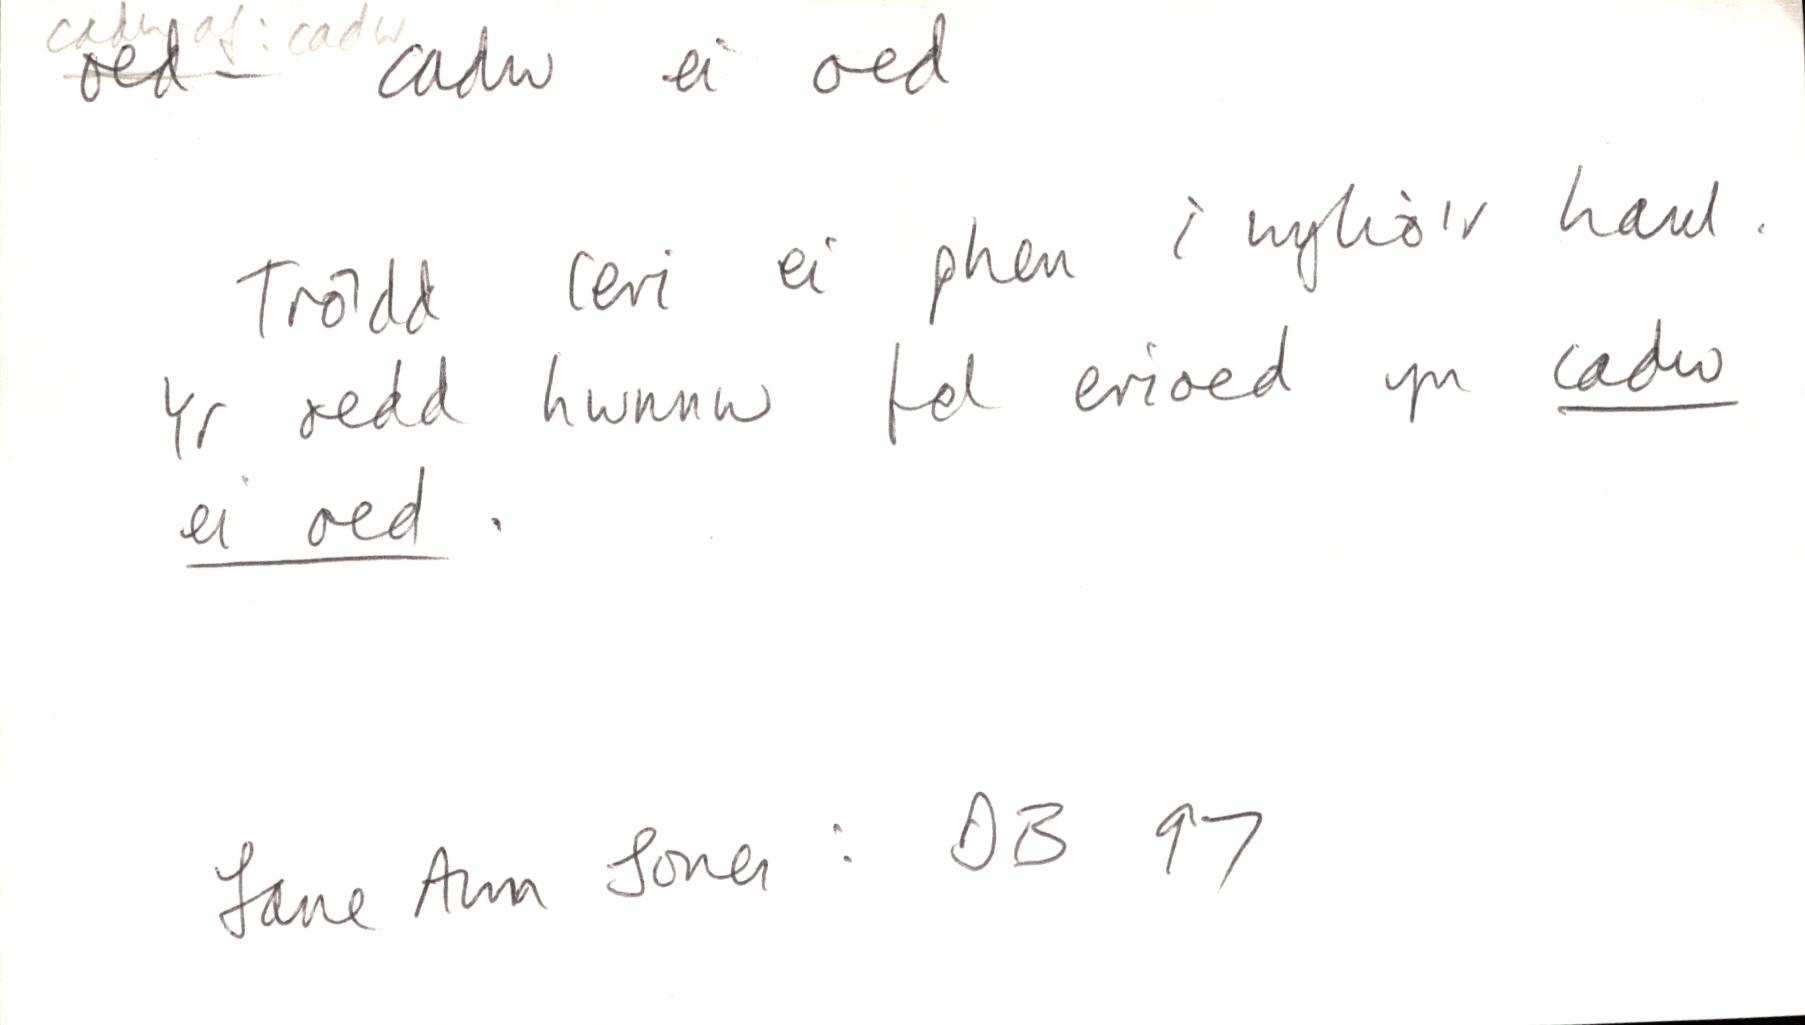 cadwaf: cadw
oed - cadw ei oed
Trôdd Ceri ei phen i wylio'r haul.
Yr oedd hwnnw fel erioed yn cadw
ei oed.
Jane Ann Jones: DB 97